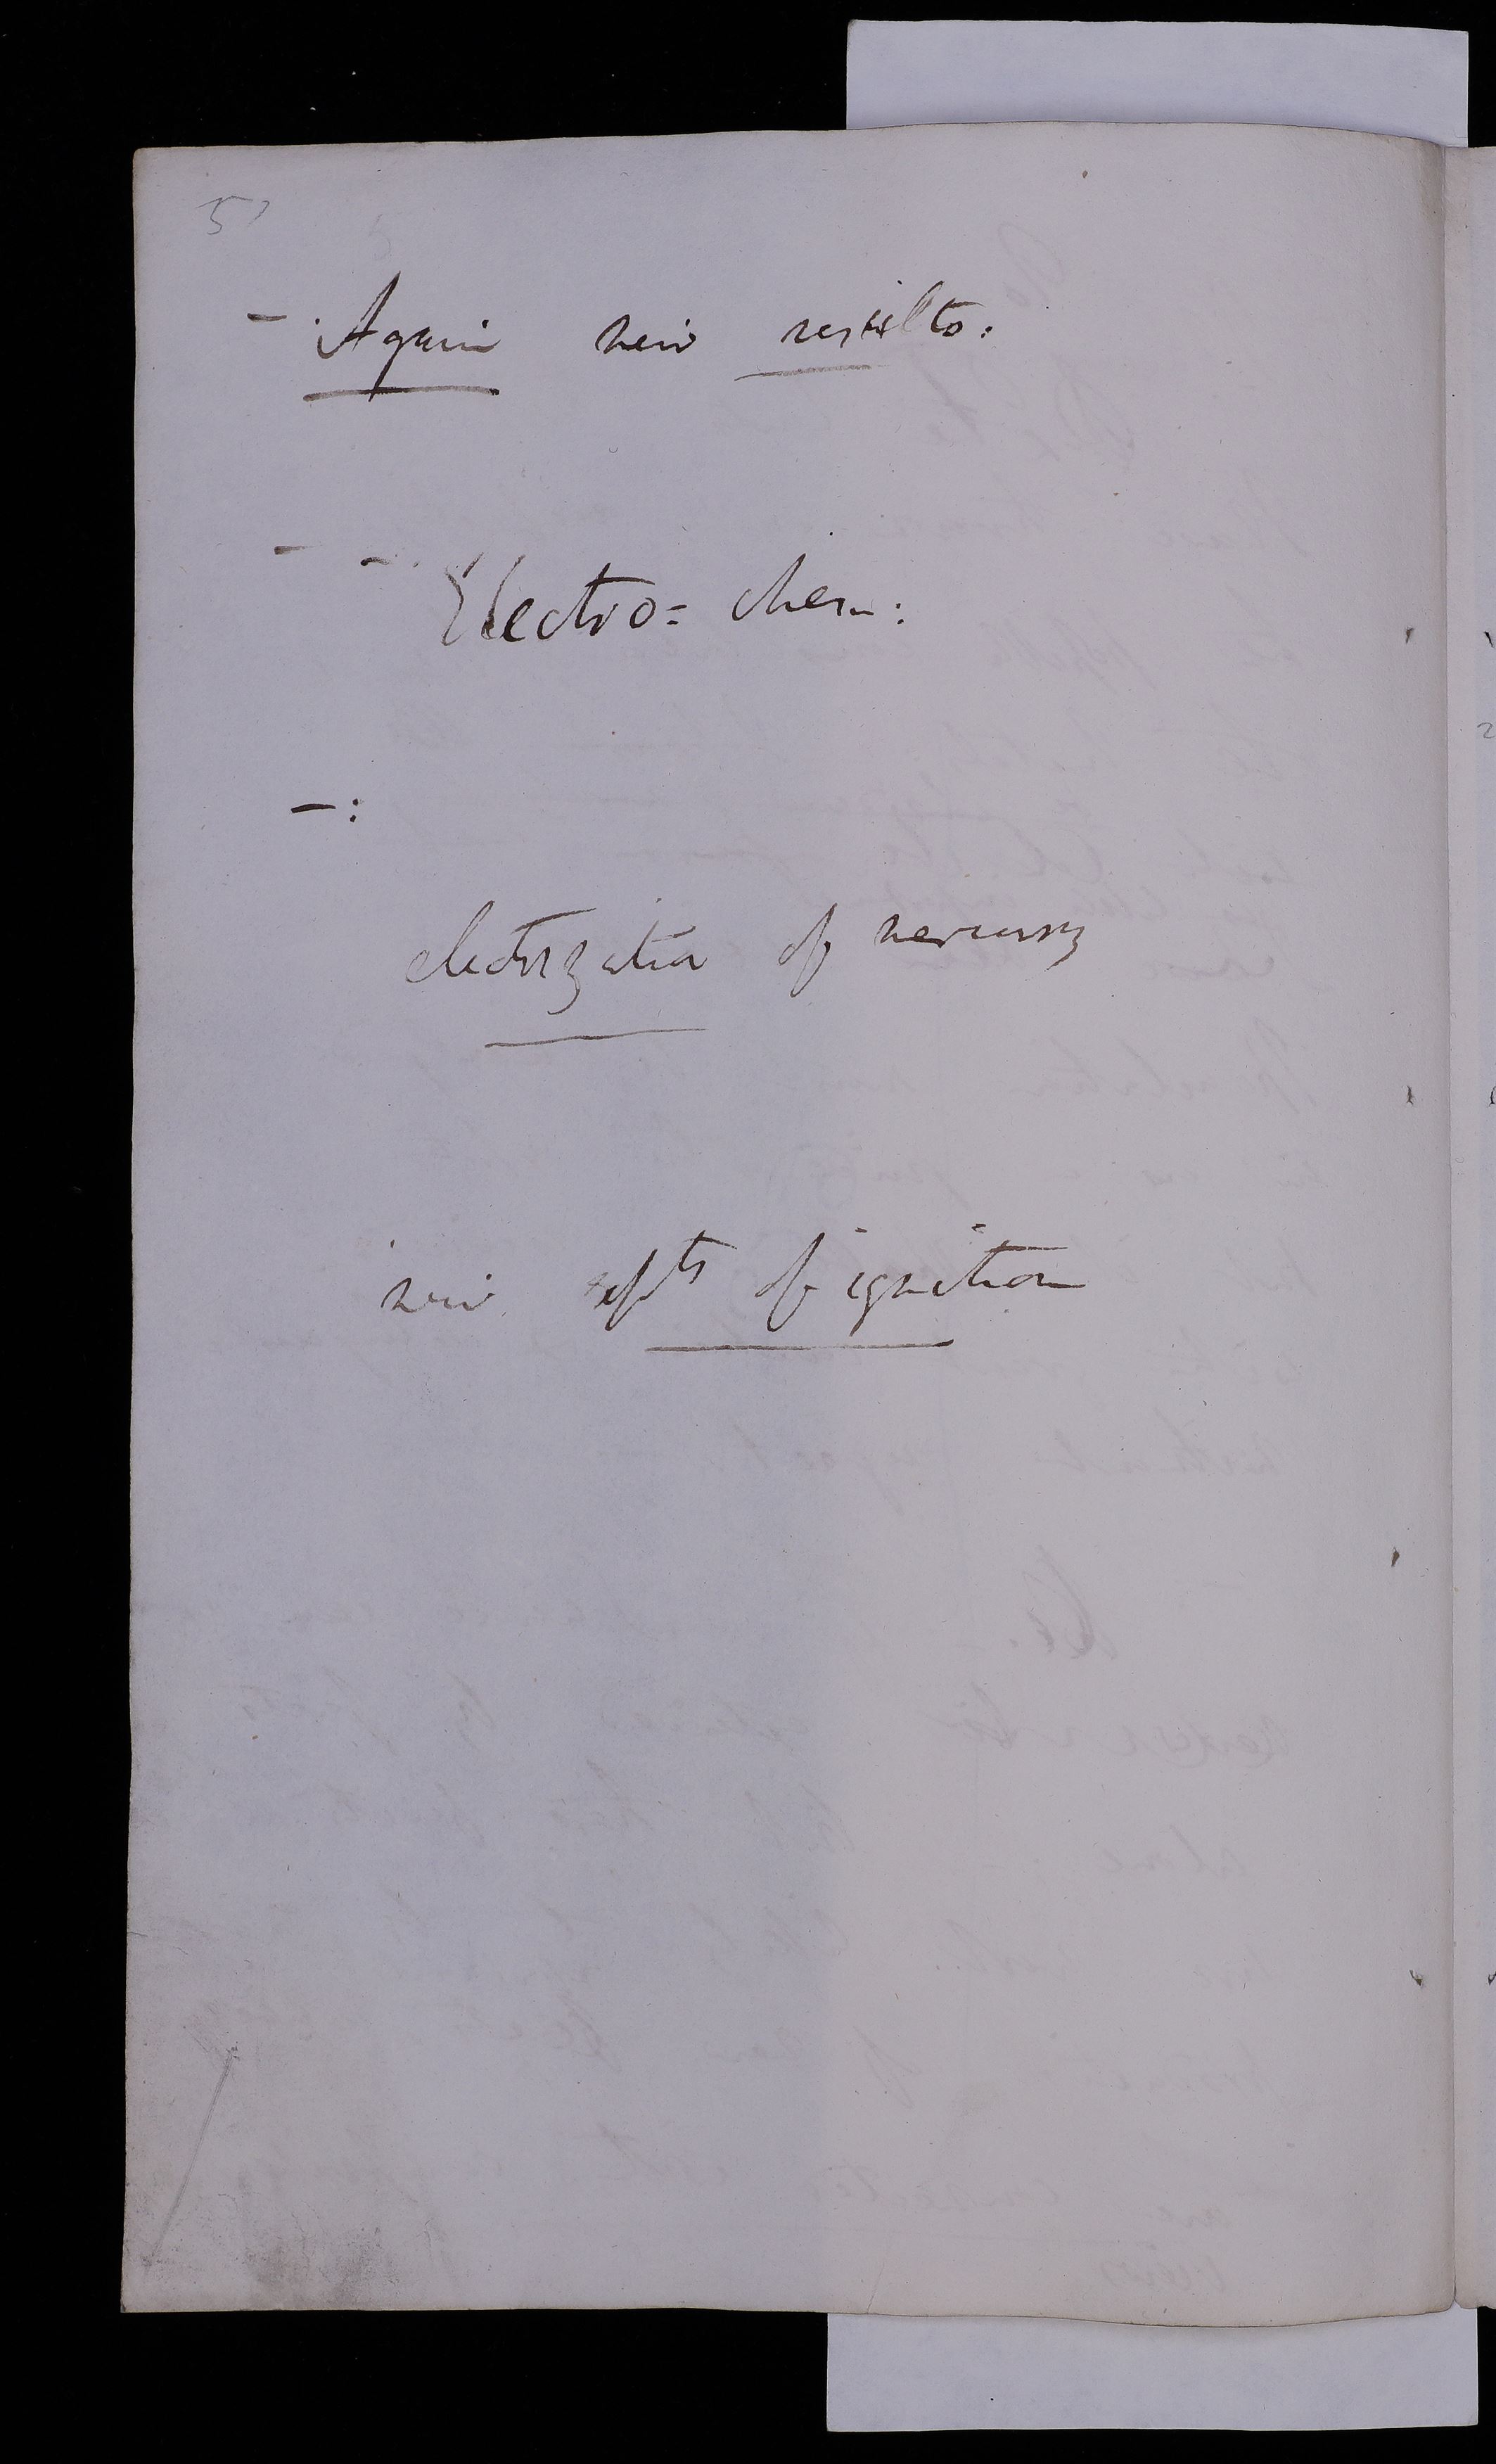 5
- Again new results:
- - Electro= chem:
- :
electrization of mercury
new expts of ignition